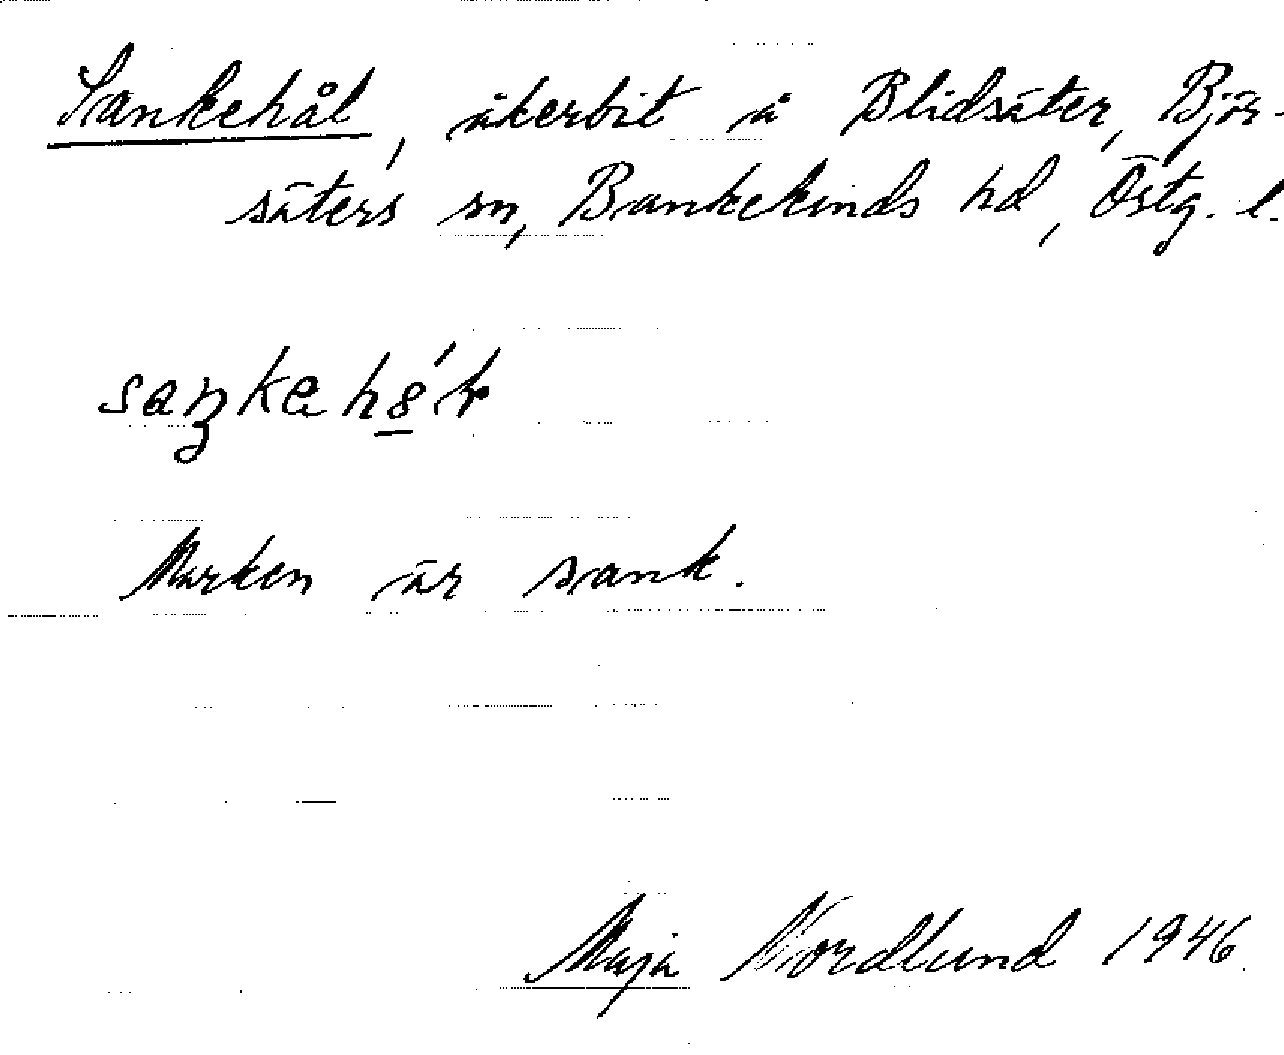 Sankehål, åkerbit å Blidsäter, Björ-
säters sn, Bankekinds hd, Östg. l.
Marken är sank.
Maja Nordlund 1946.